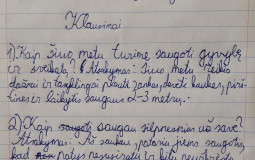 Klausimai
1) Kaip šiuo metu turime saugoti gyvybę
ir sveikatą? Atsakymas: šiuo metu reikia
dažnai ir taisyklingai plauti rankas, dėvėti kaukes, piršt-
ines ir laikytis saugaus 2-3 metrų.
2) Kaip saugoti saugau silpnesnius už save?
Atsakymas: Aš saugau, patariu jiems saugotis,
kad patys nesusirgtų ir kitų neužkrėstų